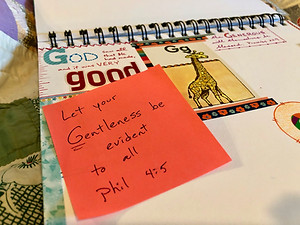 GOD saw all
that He
had made,
and it was VERY
good
Gg
Let your
Gentleness be
evident
to all
Phil 4:5